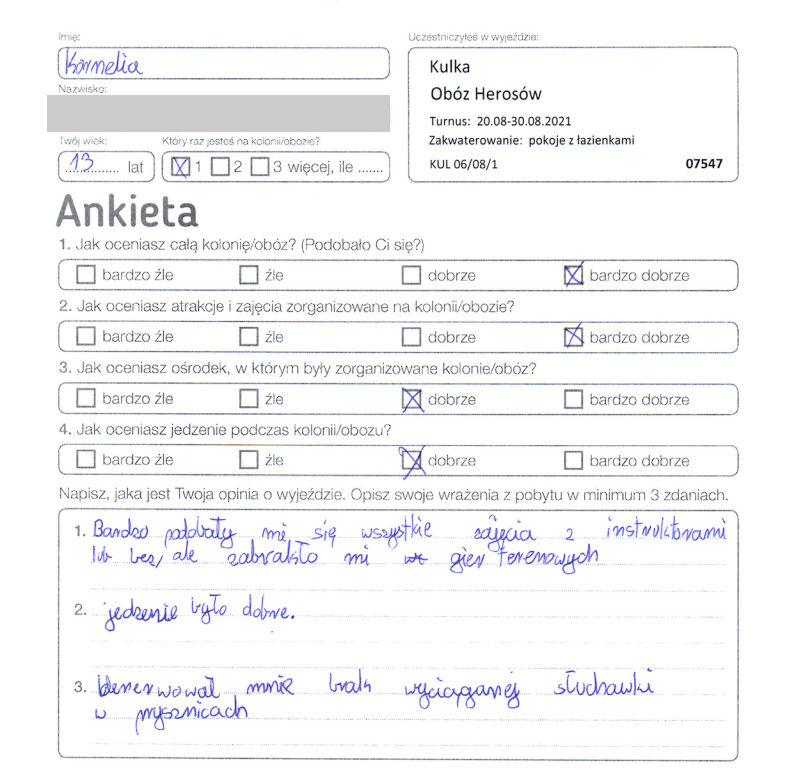 Imię:
Kornelia
Nazwisko:
Twój wiek:
13 lat
Który raz jesteś na kolonii/obozie?
1 2 3 więcej, ile .......
Uczestniczyłeś w wyjeździe:
Kulka
Obóz Herosów
Turnus: 20.08-30.08.2021
Zakwaterowanie: pokoje z łazienkami
KUL 06/08/1 07547
Ankieta
1. Jak oceniasz całą kolonię/obóz? (Podobało Ci się?)
bardzo źle źle dobrze bardzo dobrze
2. Jak oceniasz atrakcje i zajęcia zorganizowane na kolonii/obozie?
bardzo źle źle dobrze bardzo dobrze
3. Jak oceniasz ośrodek, w którym były zorganizowane kolonie/obóz?
bardzo źle źle dobrze bardzo dobrze
4. Jak oceniasz jedzenie podczas kolonii/obozu?
bardzo źle źle dobrze bardzo dobrze
Napisz, jaka jest Twoja opinia o wyjeździe. Opisz swoje wrażenia z pobytu w minimum 3 zdaniach.
1. Bardzo podobały mi się wszystkie zdjęcia z instruktorami
lub bez, ale zabrakło mi gier terenowych
2. jedzenie było dobre.
3. denerwował mnie brak wyciąganej słuchawki
w prysznicach